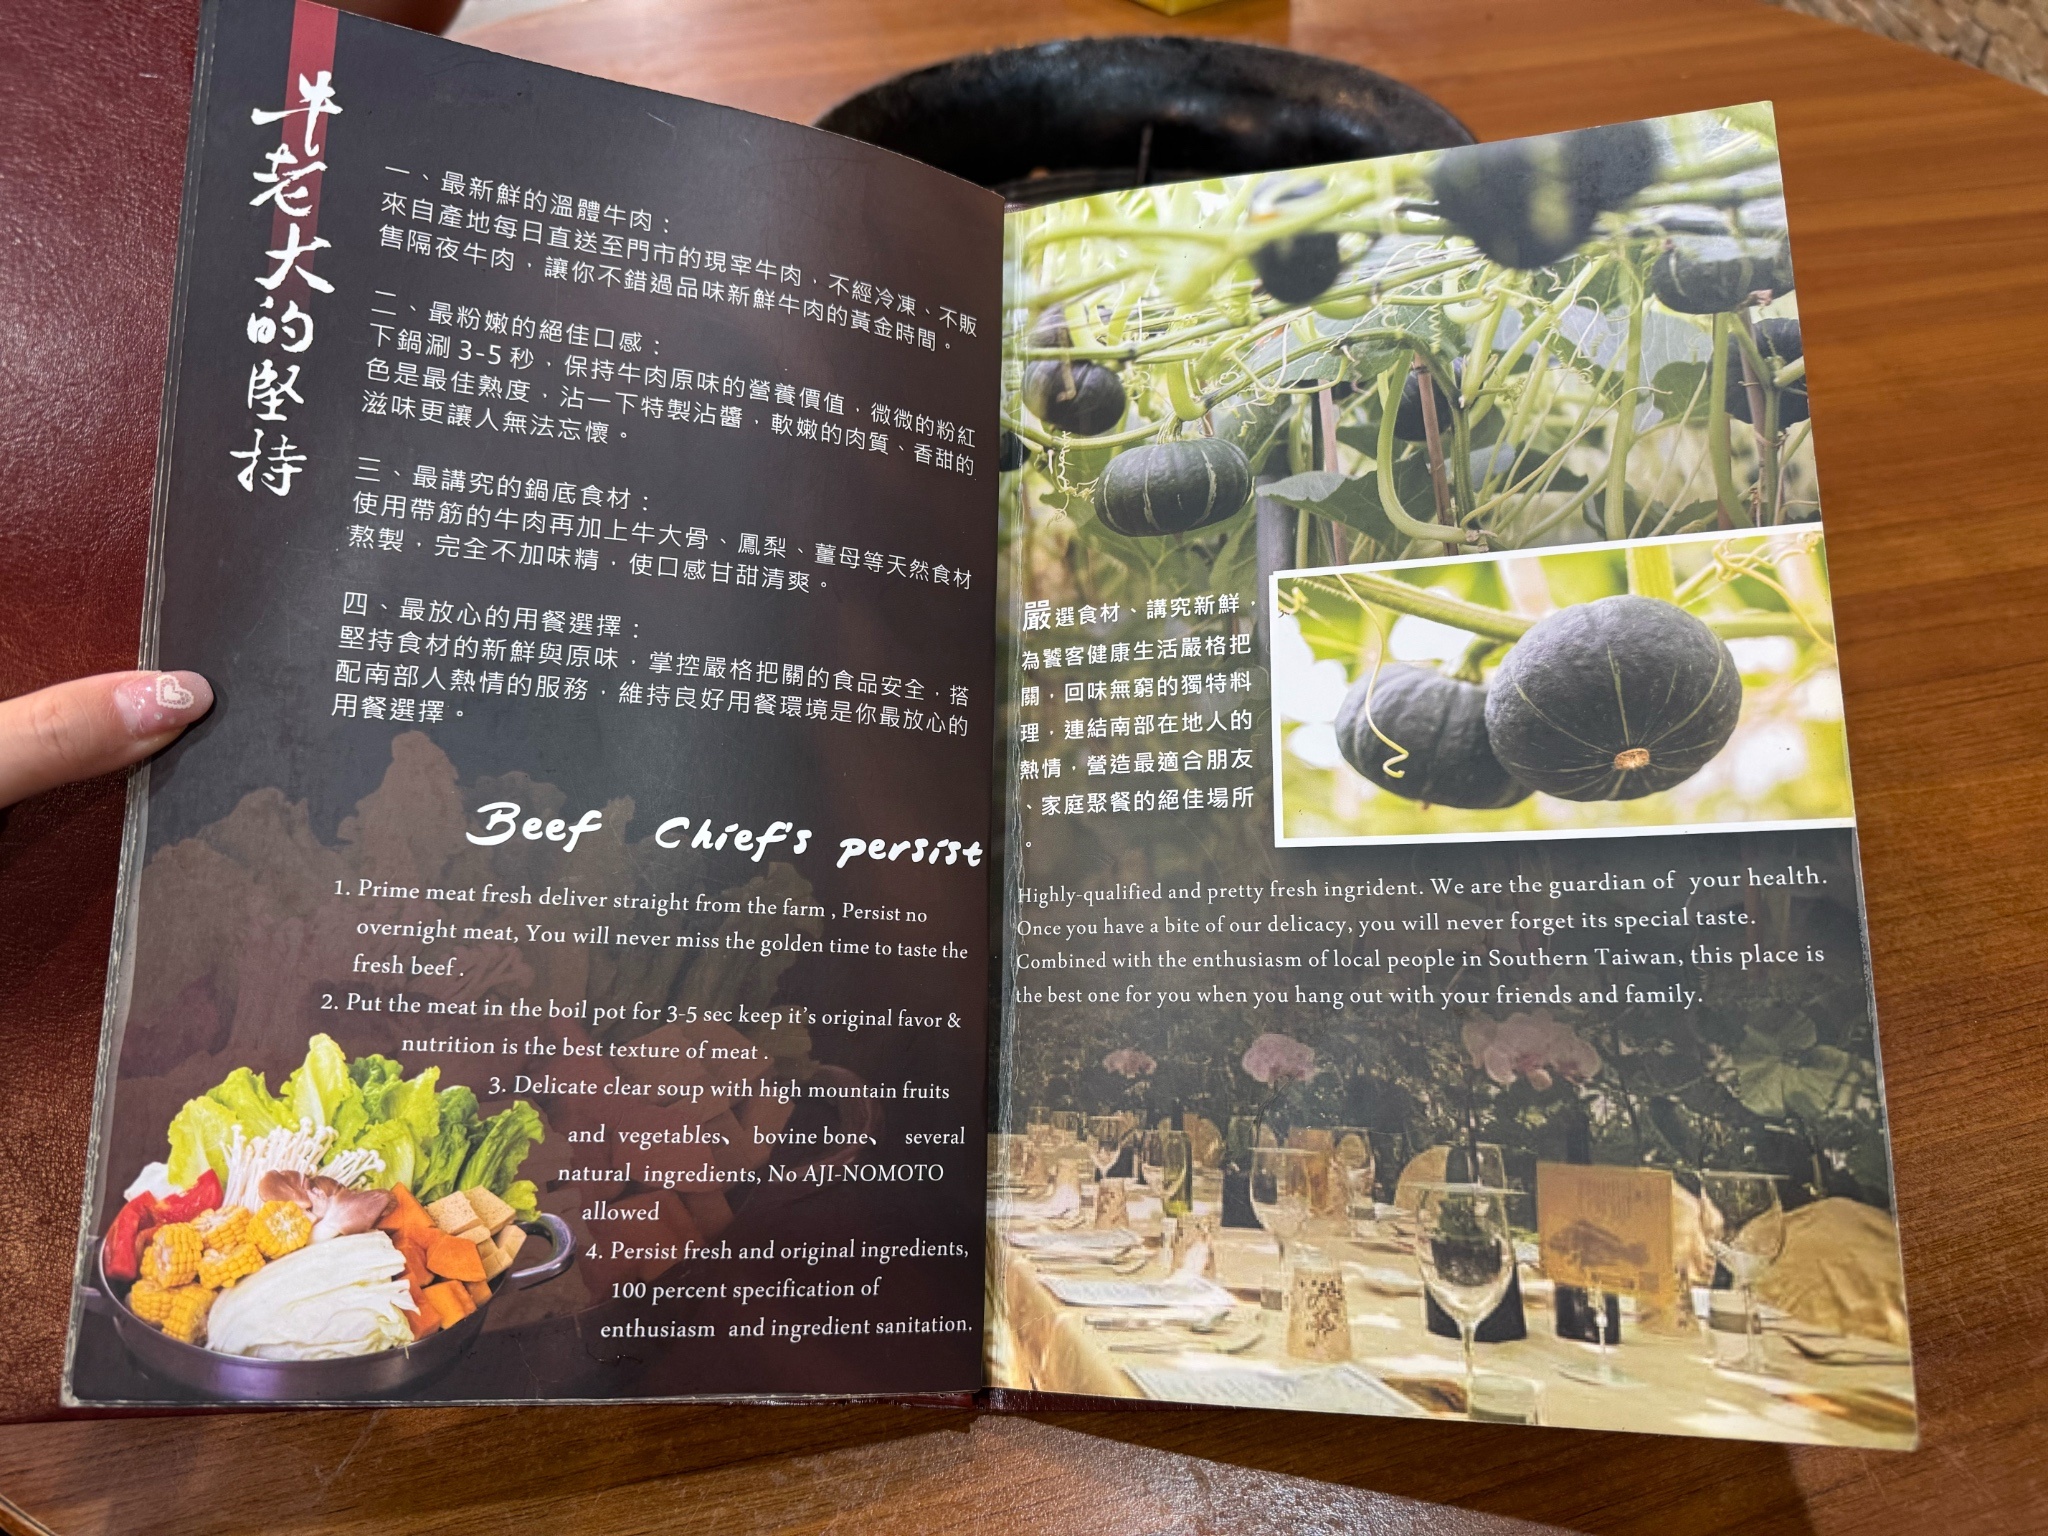 牛老大的堅持
一、最新鮮的溫體牛肉：
來自產地每日直送至門市的現宰牛肉，不經冷凍、不販
售隔夜牛肉，讓你不錯過品味新鮮牛肉的黃金時間。
二、最粉嫩的絕佳口感：
下鍋涮 3-5 秒，保持牛肉原味的營養價值，微微的粉紅
色是最佳熟度，沾一下特製沾醬，軟嫩的肉質、香甜的
滋味更讓人無法忘懷。
三、最講究的鍋底食材：
使用帶筋的牛肉再加上牛大骨、鳳梨、薑母等天然食材
熬製，完全不加味精，使口感甘甜清爽。
四、最放心的用餐選擇：
堅持食材的新鮮與原味，掌控嚴格把關的食品安全，搭
配南部人熱情的服務，維持良好用餐環境是你最放心的
用餐選擇。
Beef Chief's persist
1. Prime meat fresh deliver straight from the farm , Persist no
overnight meat, You will never miss the golden time to taste the
fresh beef .
2. Put the meat in the boil pot for 3-5 sec keep it's original favor &
nutrition is the best texture of meat .
3. Delicate clear soup with high mountain fruits
and vegetables、 bovine bone、 several
natural ingredients, No AJI-NOMOTO
allowed
4. Persist fresh and original ingredients,
100 percent specification of
enthusiasm and ingredient sanitation.
嚴選食材、講究新鮮，
為饕客健康生活嚴格把
關，回味無窮的獨特料
理，連結南部在地人的
熱情，營造最適合朋友
、家庭聚餐的絕佳場所
。
Highly-qualified and pretty fresh ingrident. We are the guardian of your health.
Once you have a bite of our delicacy, you will never forget its special taste.
Combined with the enthusiasm of local people in Southern Taiwan, this place is
the best one for you when you hang out with your friends and family.